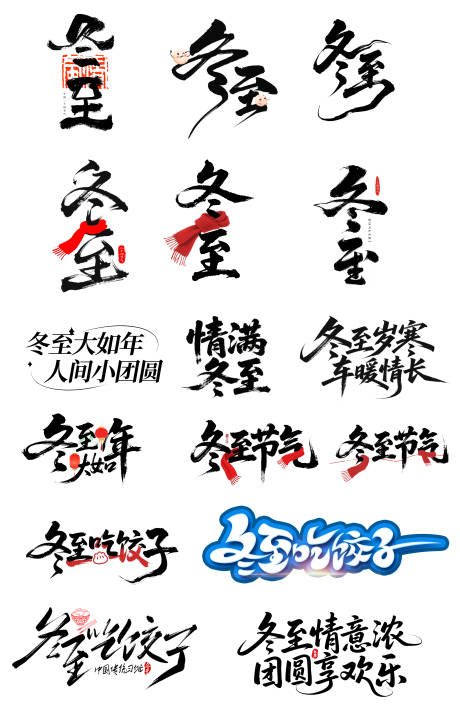 冬至
冬至
冬至
冬至
冬至
冬至
冬至大如年
人间小团圆
情满
冬至
冬至岁寒
车暖情长
冬至
大如年
冬至节气
冬至节气
冬至吃饺子
冬至吃饺子
冬至吃饺子
中国传统习俗
冬至情意浓
团圆享欢乐